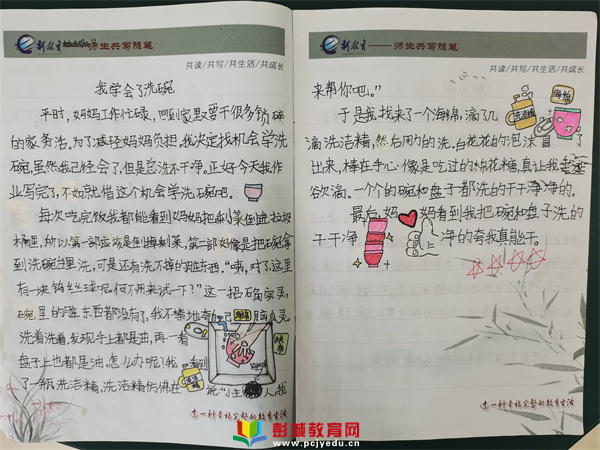 新教育——师生共写随笔
共读/共写/共生活/共成长
我学会了洗碗
平时,妈妈工作忙碌,回到家里要干很多琐碎
的家务活。为了减轻妈妈负担,我决定找机会学洗
碗,虽然我已经会了,但是总洗不干净。正好今天我作
业写完了,不如就借这个机会学洗碗吧。
每次吃完饭我都能看到妈妈把剩菜倒进垃圾
桶里,所以第一部应该是倒掉剩菜,第二部好像是把碗拿
到洗碗台里洗,可是还有洗不掉的脏东西。“咦,对了这里
有一块钢丝球呢,何不用来试一下?”这一招确实灵,
碗里的脏东西都没有了,我不禁地夸自己脑瓜灵
洗着洗着,发现手上都是油,再一看
盘子上也都是油,怎么办呢!我看到
了一瓶洗洁精,洗洁精仿佛在说“小主人,我
过一种幸福完整的教育生活
新教育——师生共写随笔
共读/共写/共生活/共成长
来帮你吧。”
海绵
洗洁精
于是我找来了一个海绵,滴了几
滴洗洁精,然后用力的洗。白花花的泡沫冒了
出来,棒在手心像是吃过的棉花糖,真让我垂涎
欲滴。一个个的碗和盘子都洗的干干净净的。
最后,妈妈看到我把碗和盘子洗的
干干净净的夸我真能干。
过一种幸福完整的教育生活
彭城教育网
www.pcjyedu.cn